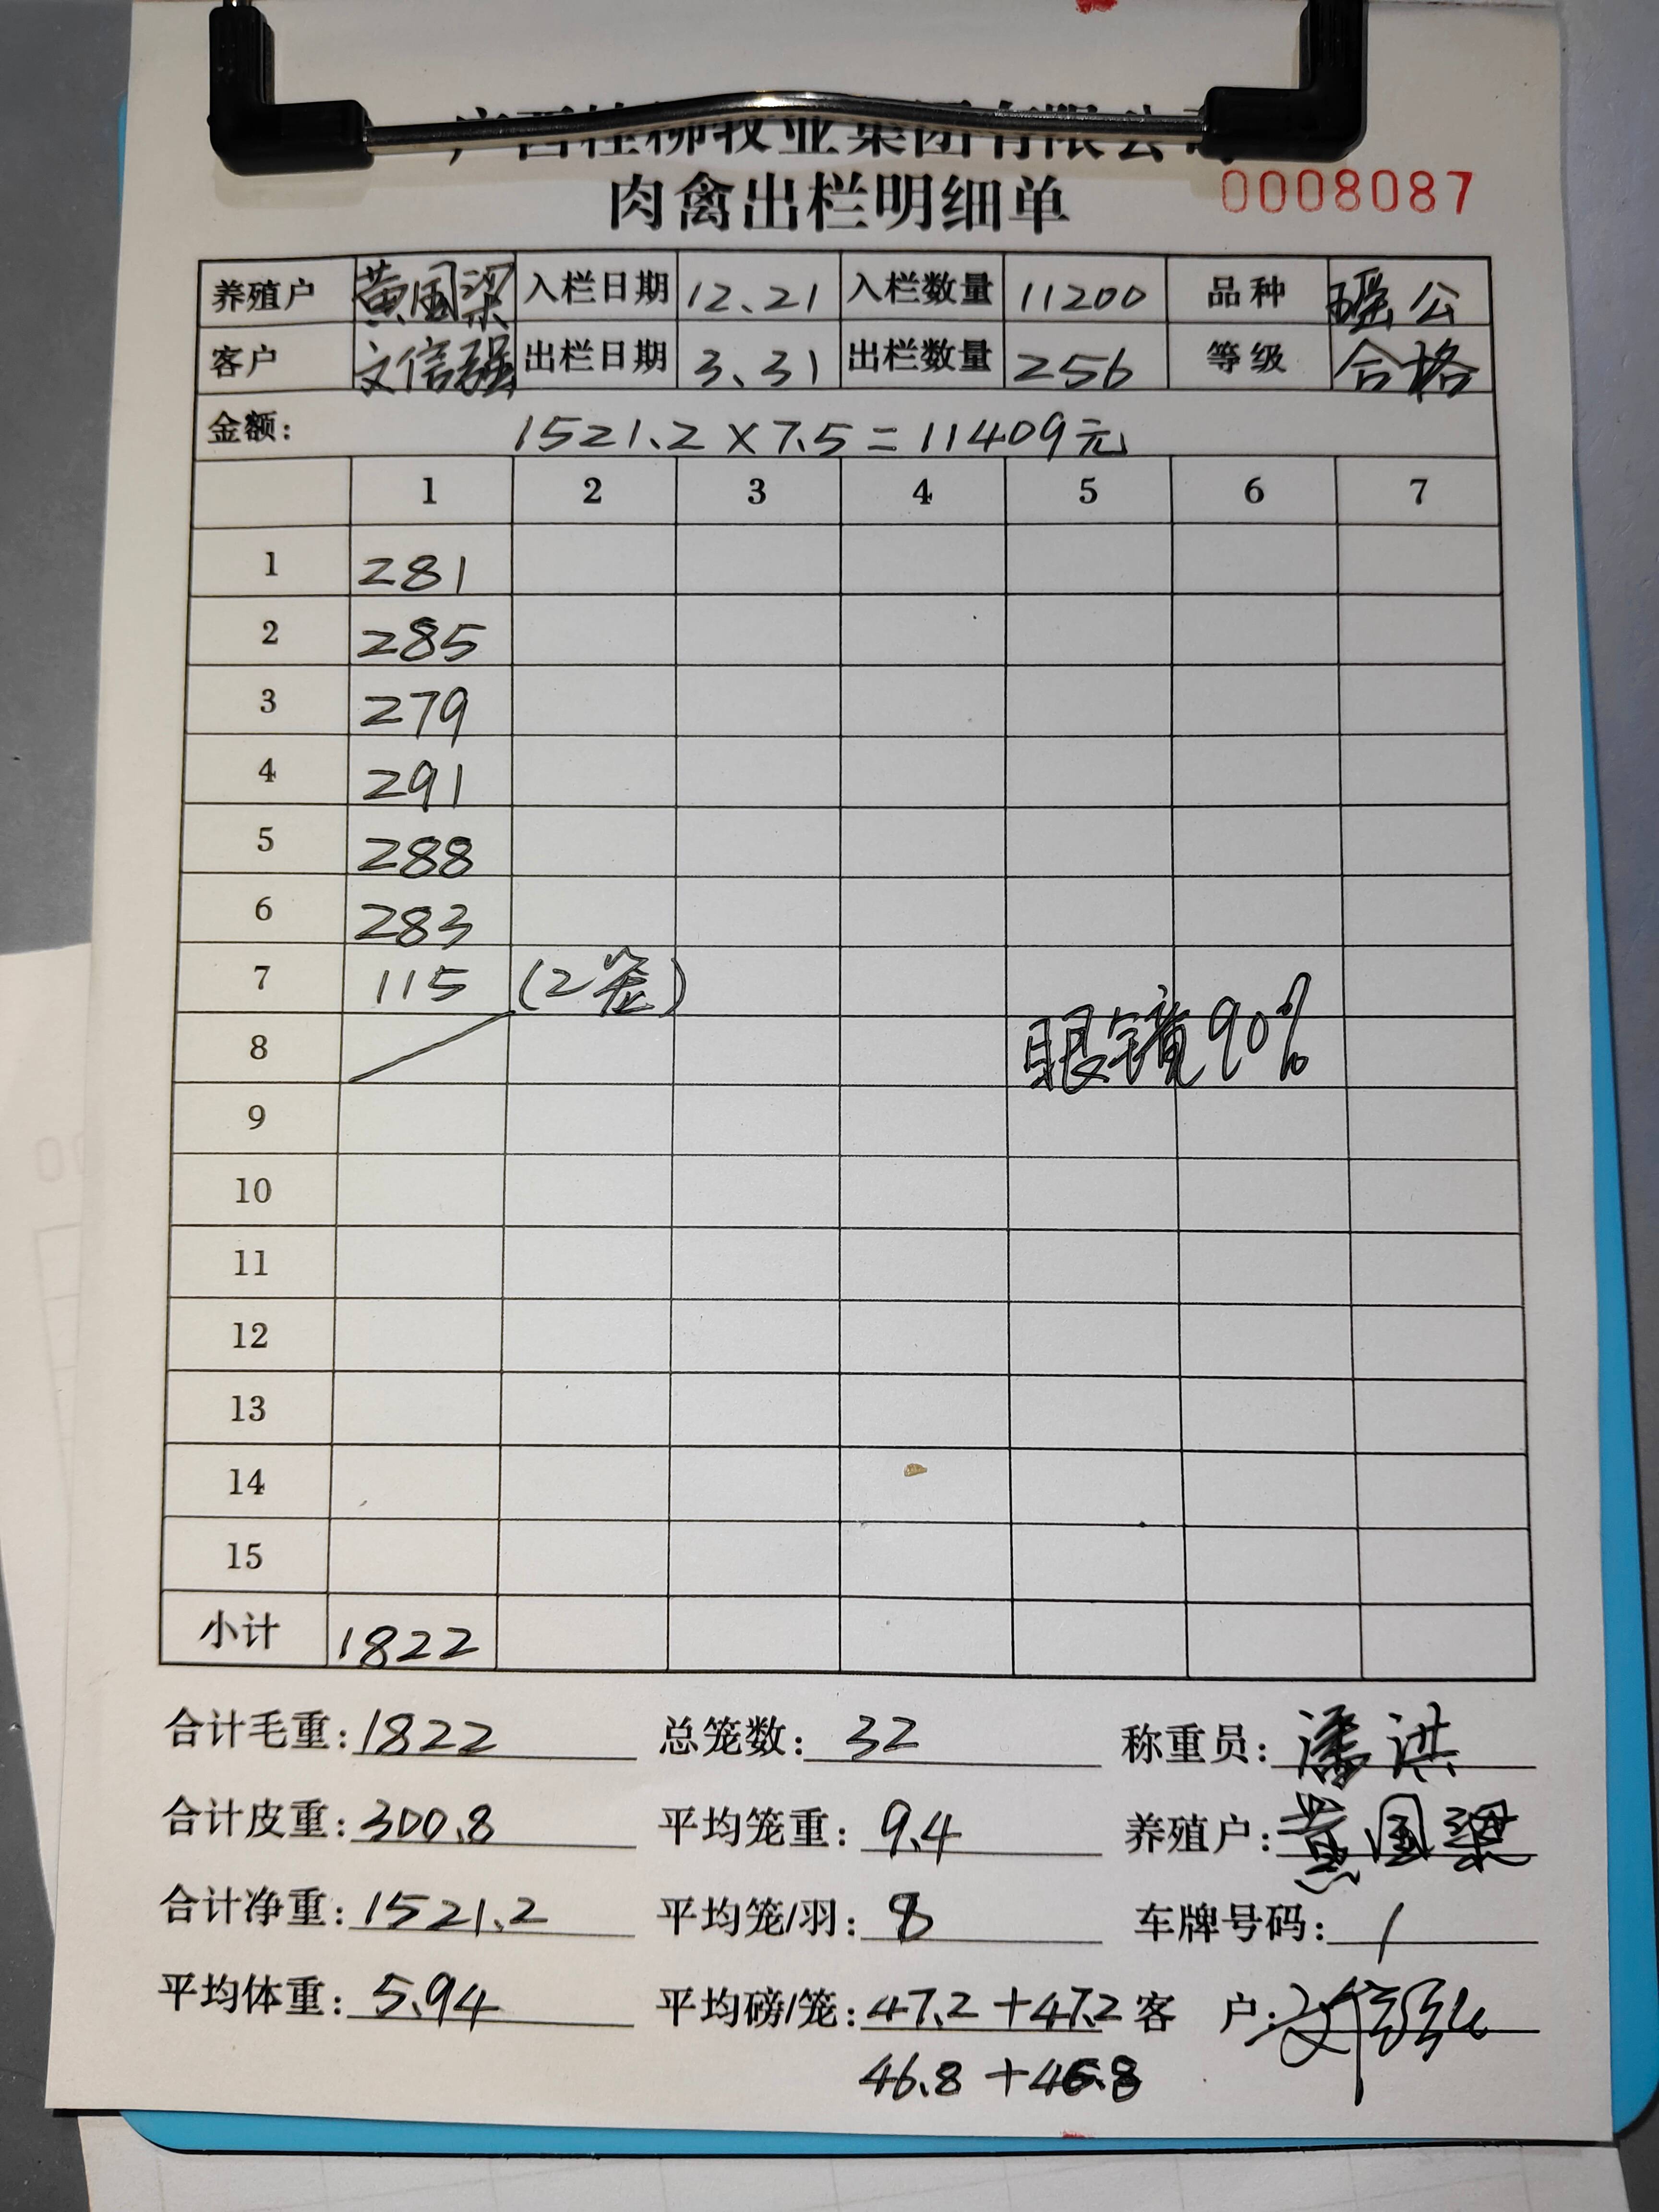 广西桂柳牧业集团有限公司
肉禽出栏明细单 0008087
养殖户 黄国梁 入栏日期 12.21 入栏数量 11200 品种 瑶公
客户 文信强 出栏日期 3.31 出栏数量 256 等级 合格
金额: 1521.2×7.5=11409元
1 2 3 4 5 6 7
1 281
2 285
3 279
4 291
5 288
6 283
7 115 (2笼)
8 眼镜90%
9
10
11
12
13
14
15
小计 1822
合计毛重:1822 总笼数:32 称重员:潘洪
合计皮重:300.8 平均笼重:9.4 养殖户:黄国梁
合计净重:1521.2 平均笼/羽:8 车牌号码:/
平均体重:5.94 平均磅/笼:47.2+47.2 客 户:文信强
46.8+46.8